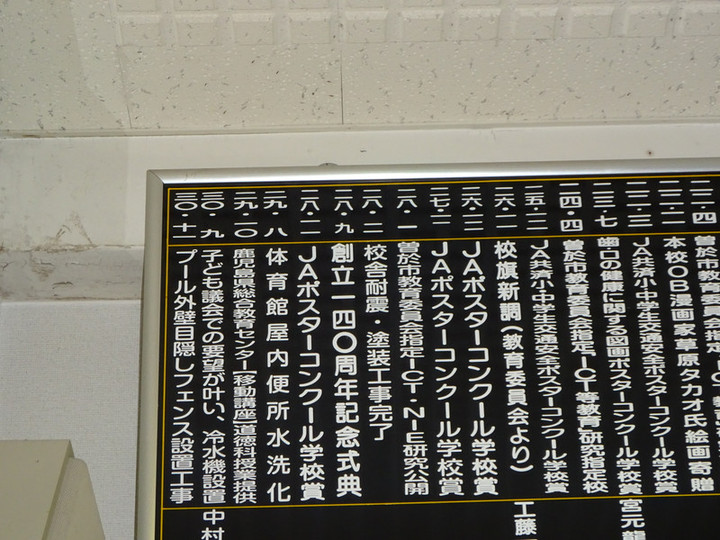 曽於市教育委員会指定
二二・二 本校OB漫画家草原タカオ氏絵画寄贈
二二・三 JA共済小中学生交通安全ポスターコンクール学校賞
二三・七 歯口の健康に関する図画ポスターコンクール学校賞
二四・四 曽於市教育委員会指定ICT等教育研究指定校
二五・二 JA共済小中学生交通安全ポスターコンクール学校賞
二六・一 校旗新調(教育委員会より)
二六・二 JAポスターコンクール学校賞
二七・二 JAポスターコンクール学校賞
二八・一 曽於市教育委員会指定ICT・NIE研究公開
二八・二 校舎耐震・塗装工事完了
二八・九 創立一四〇周年記念式典
二八・二 JAポスターコンクール学校賞
二九・八 体育館屋内便所水洗化
二九・一〇 鹿児島県総合教育センター【移動講座】道徳科授業提供
三〇・九 子ども議会での要望が叶い、冷水機設置
三〇・十一 プール外壁目隠しフェンス設置工事
宮元龍
工藤
中村